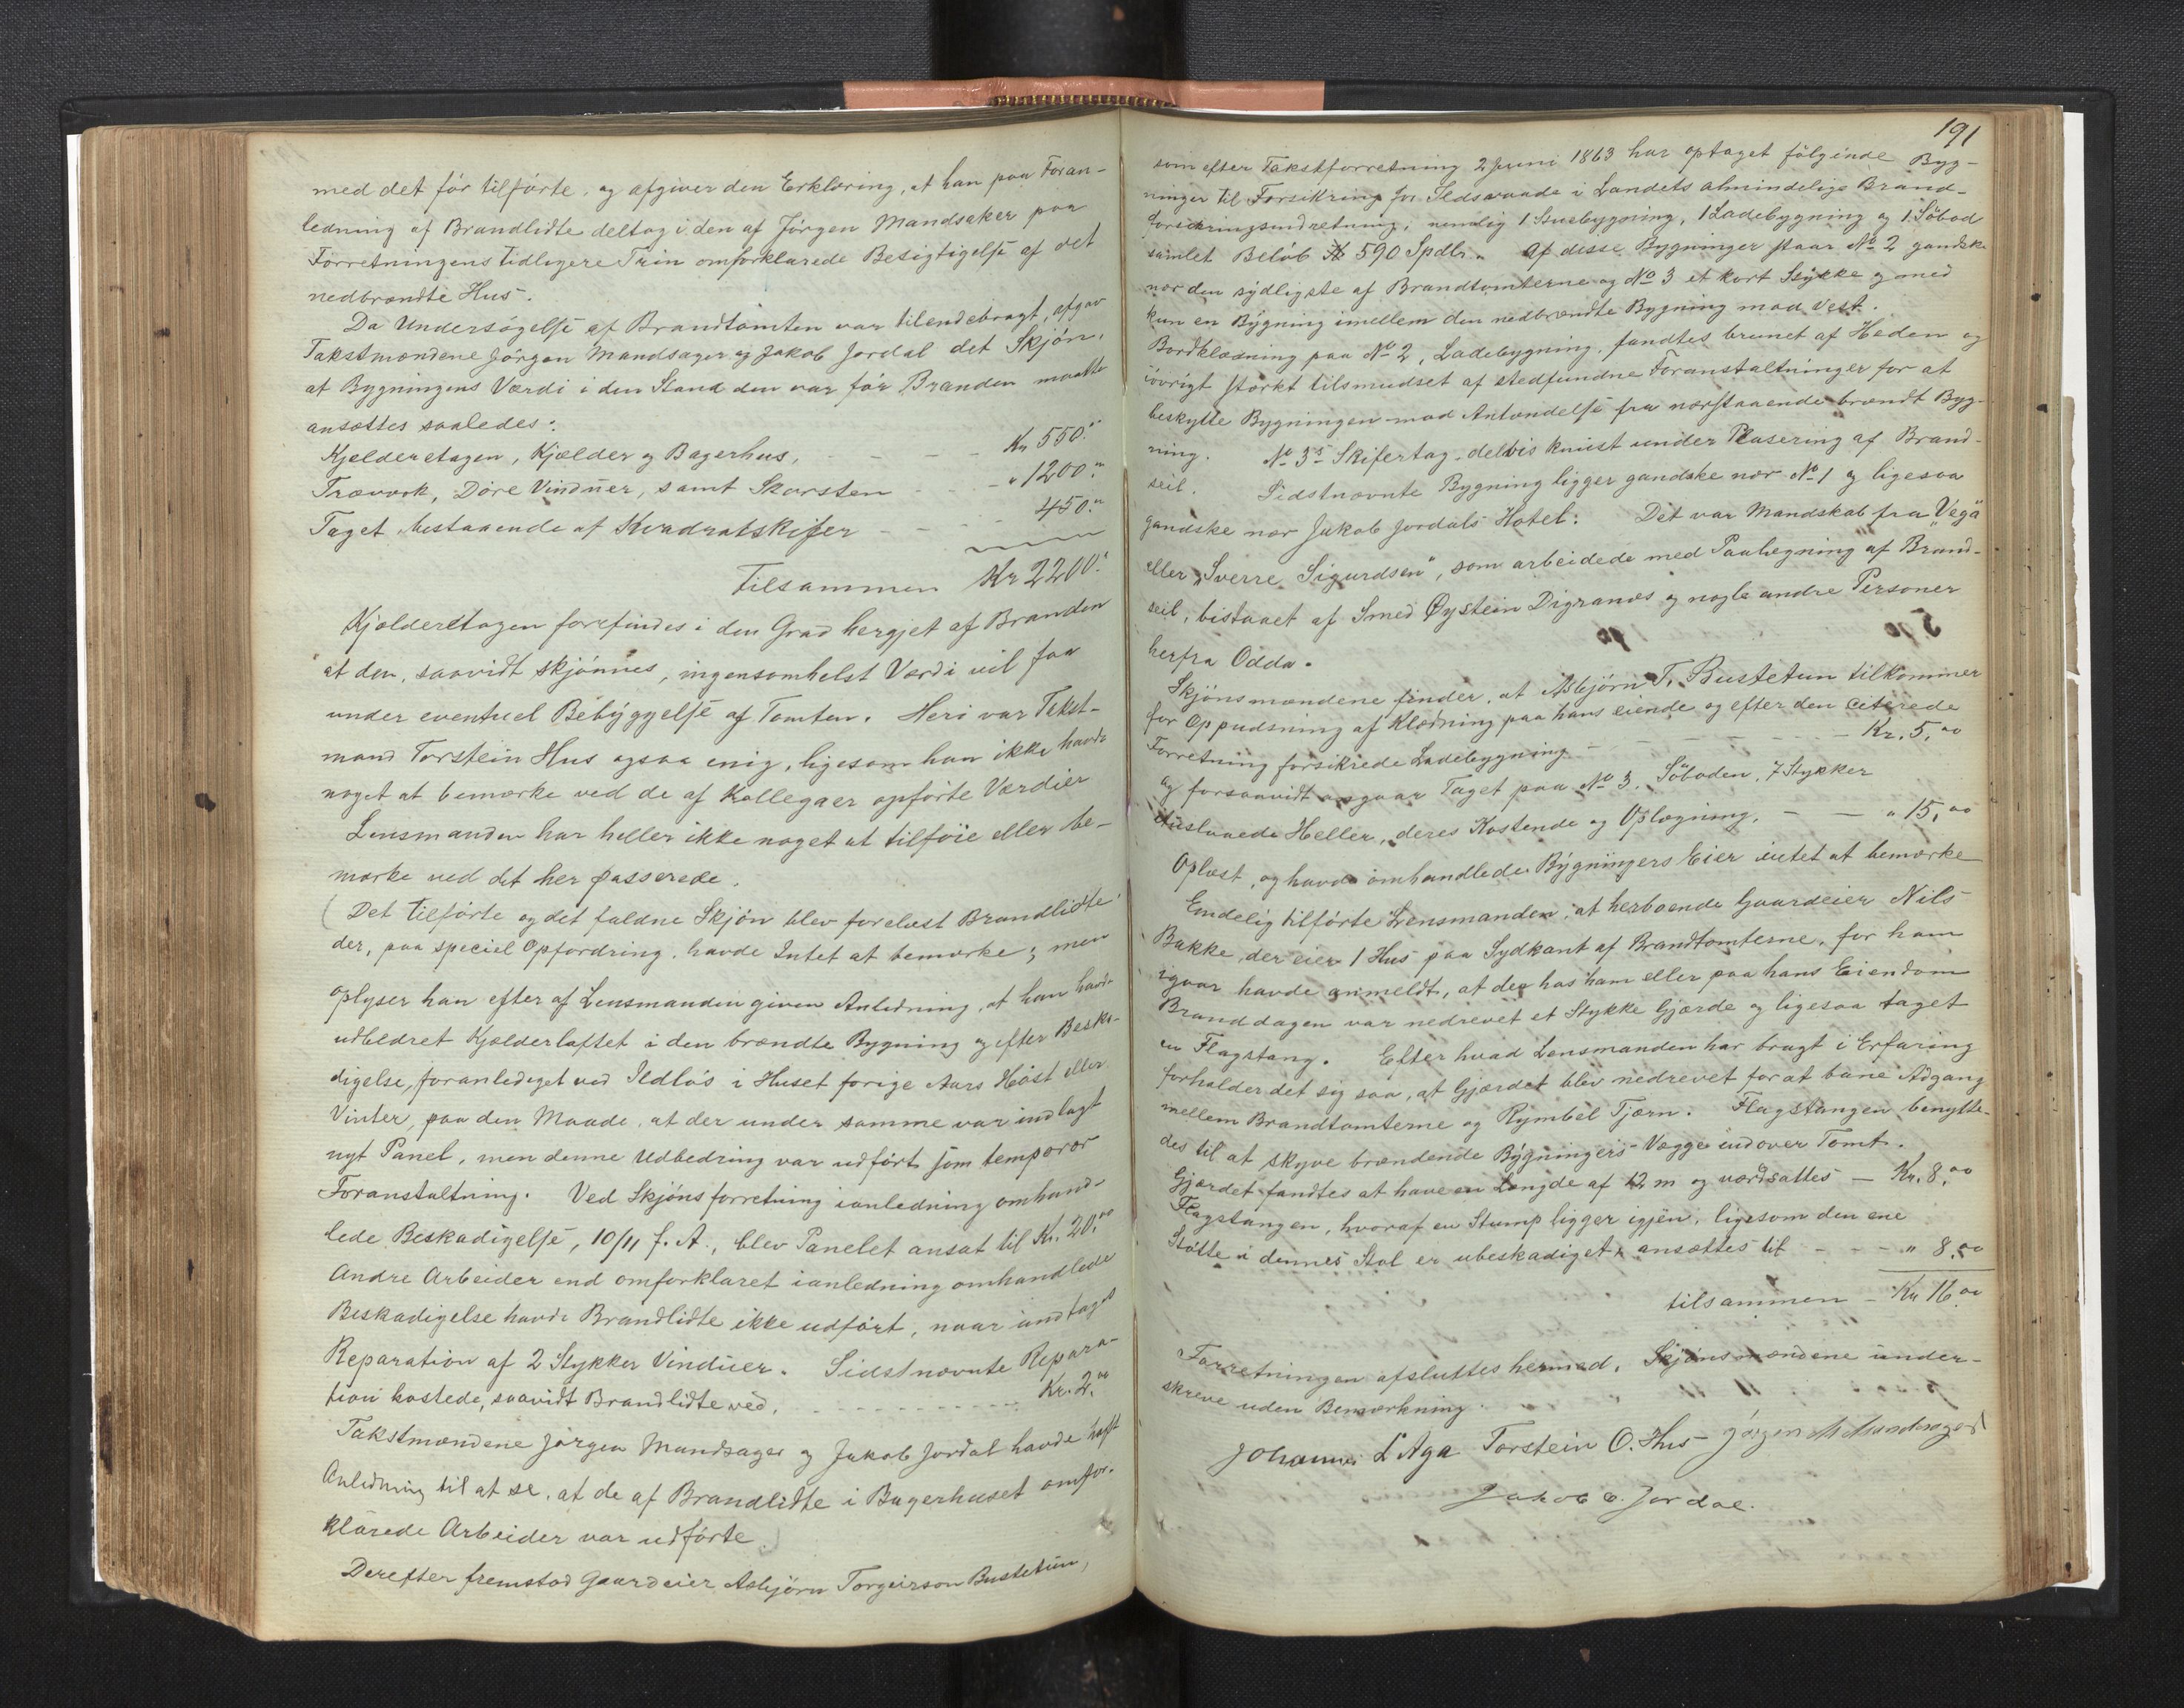 med det før tilførte, og afgiver den Erklæring, at han paa Foran-
ledning af Brandlidte deltog i den af Jörgen Mandsaker paa
Forretningens tidligere Trin omforklarede Besigtigelse af det
nedbrændte Hus.
Da Undersøgelse af Brandtomten var tilendebragt, afgav
Takstmændene Jörgen Mandsager og Jakob Jordal det Skjön,
at Bygningens Værdi i den Stand den var før Branden maatte
ansættes saaledes:
Kjelderetagen, Kjælder og Bagerhus, - - - - Kr 550."
Træværk, Döre Vinduer, samt Skorsten - - - " 1200."
Taget, bestaaende af Kvadratskifer - - - - 450."
Tilsammen Kr 2200."
Kjælderetagen forefindes i den Grad hergjet af Branden
at den, saavidt skjönnes, ingensomhelst Værdi vil faa
under eventuel Bebyggelse af Tomten. Heri var Takst-
mand Torstein Hus ogsaa enig, ligesom han ikke havde
noget at bemærke ved de af Kollegaer opførte Værdier
Lensmanden har heller ikke noget at tilföie eller be-
mærke ved det her passerede.
(Det tilförte og det faldne Skjön blev forelæst Brandlidte
der, paa speciel Opfordring, havde Intet at bemærke; men
oplyser han efter af Lensmanden given Anledning, at han havde
udbedret Kjælderloftet i den brændte Bygning og efter Beska-
digelse, foranlediget ved Ildløs i Huset forige Aars Høst eller
Vinter, paa den Maade, at der under samme var indlagt
nyt Panel, men denne Udbedring var udfört som temporær
Foranstaltning. Ved Skjönsforretning ianledning omhand-
lede Beskadigelse, 10/11 f. A., blev Panelet ansat til Kr. 20.00
Andre Arbeider end omforklaret ianledning omhandlede
Beskadigelse havde Brandlidte ikke udfört, naar undtages
Reparation af 2 Stykker Vinduer. Sidstnævnte Repara-
tion kostede, saavidt Brandlidte ved, - - - - - - Kr. 2.00
Takstmændene Jörgen Mandsager og Jakob Jordal havde haft
Anledning til at se, at de af Brandlidte i Bagerhuset omfor-
klarede Arbeider var udförte.)
Derefter fremstod Gaardeier Asbjörn Torgeirson Bustetun,
191
som efter Takstforretning 2 Juni 1863 har optaget følgende Byg-
ninger til Forsikring for Ildsvaade i Landets almindelige Brand-
forsikringsindretning; nemlig 1 Stuebygning, 1 Ladebygning og 1 Söbod
samlet Beløb 590 Spdlr. Af disse Bygninger staar No 2 gandske
nær den sydligste af Brandtomterne og No 3 et kort Stykke og med
kun en Bygning imellem den nedbrændte Bygning mod Vest.
Bordklædning paa No 2, Ladebygning, fandtes brunet af Heden og
iövrigt stærkt tilsmudset af stedfundne Foranstaltninger for at
beskytte Bygningen mod Antændelse fra nærstaaende brændt Byg-
ning. No 3s Skifertag delvis knust under Plasering af Brand-
seil. Sidstnævnte Bygning ligger gandske nær No 1 og ligesaa
gandske nær Jakob Jordals Hotel. Det var Mandskab fra "Vega"
eller "Sverre Sigurdsen", som arbeidede med Paalægning af Brand-
seil, bistaaet af Smed Øystein Digranæs og nogle andre Personer
herfra Odda.
Skjönsmændene finder, at Asbjörn T. Bustetun tilkommer
for Oppudsning af Klædning paa hans eiende og efter den citerede
Forretning forsikrede Ladebygning - - - - - - Kr. 5.00
og forsaavidt angaar Taget paa No 3. Söboden, 7 Stykker
Heller, deres Kostende og Oplægning, - - " 15,00
Oplæst, og havde omhandlede Bygningers Eier intet at bemærke
Endelig tilförte Lensmanden, at herboende Gaardeier Nils
Bakke, der eier 1 Hus paa Sydkant af Brandtomterne, for ham
igaar havde anmeldt, at der hos ham eller paa hans Eiendom
Branddagen var nedrevet et Stykke Gjærde og ligesaa taget
en Flagstang. Efter hvad Lensmanden har bragt i Erfaring
forholder det sig saa, at Gjærdet blev nedrevet for at bane Adgang
mellem Brandtomterne og Rymbel Tjærn. Flagstangen benytte-
des til at skyve brændende Bygningers Vægge indover Tomt.
Gjærdet fandtes at have en Længde af 12 m og værdsattes - Kr. 8.00
Flagstangen, hvoraf en Stump ligger igjen, ligesom den ene
Stötte i dennes Stol er ubeskadiget, ansættes til - - - " 8.00
tilsammen - Kr 16.00
Forretningen afsluttes hermed. Skjönsmændene under-
skreve uden Bemærkning.
Johannes L Aga Torstein O. Hus Jörgen Mandsager
Jakob E. Jordal.